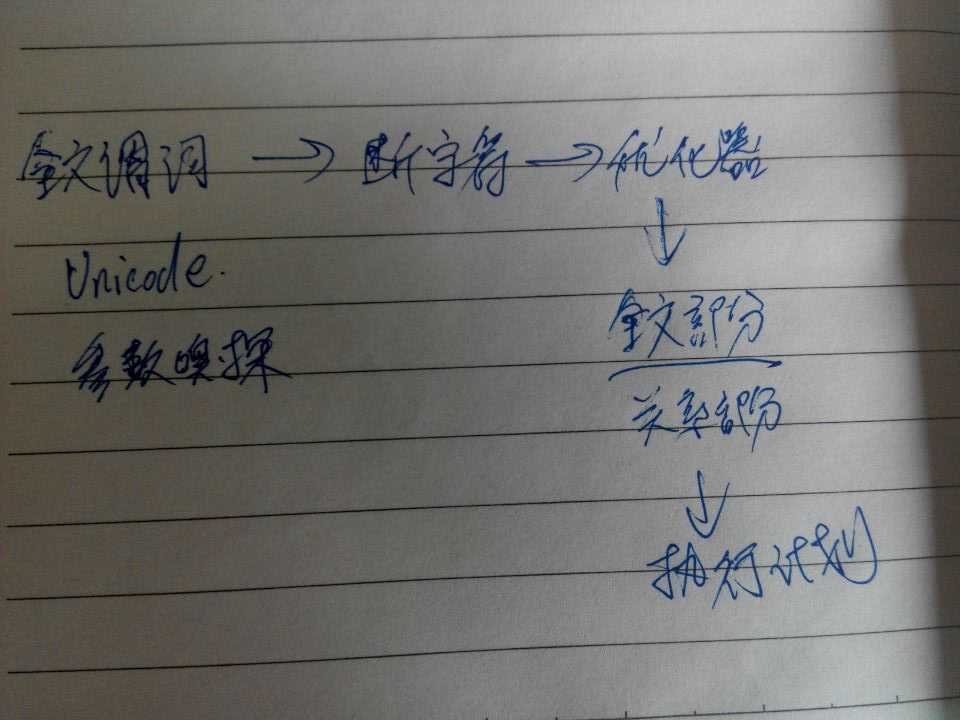 全文调词 → 断字符 → 优化器
↓
Unicode.
全文部分
参数嗅探
关系部分
↓
执行计划